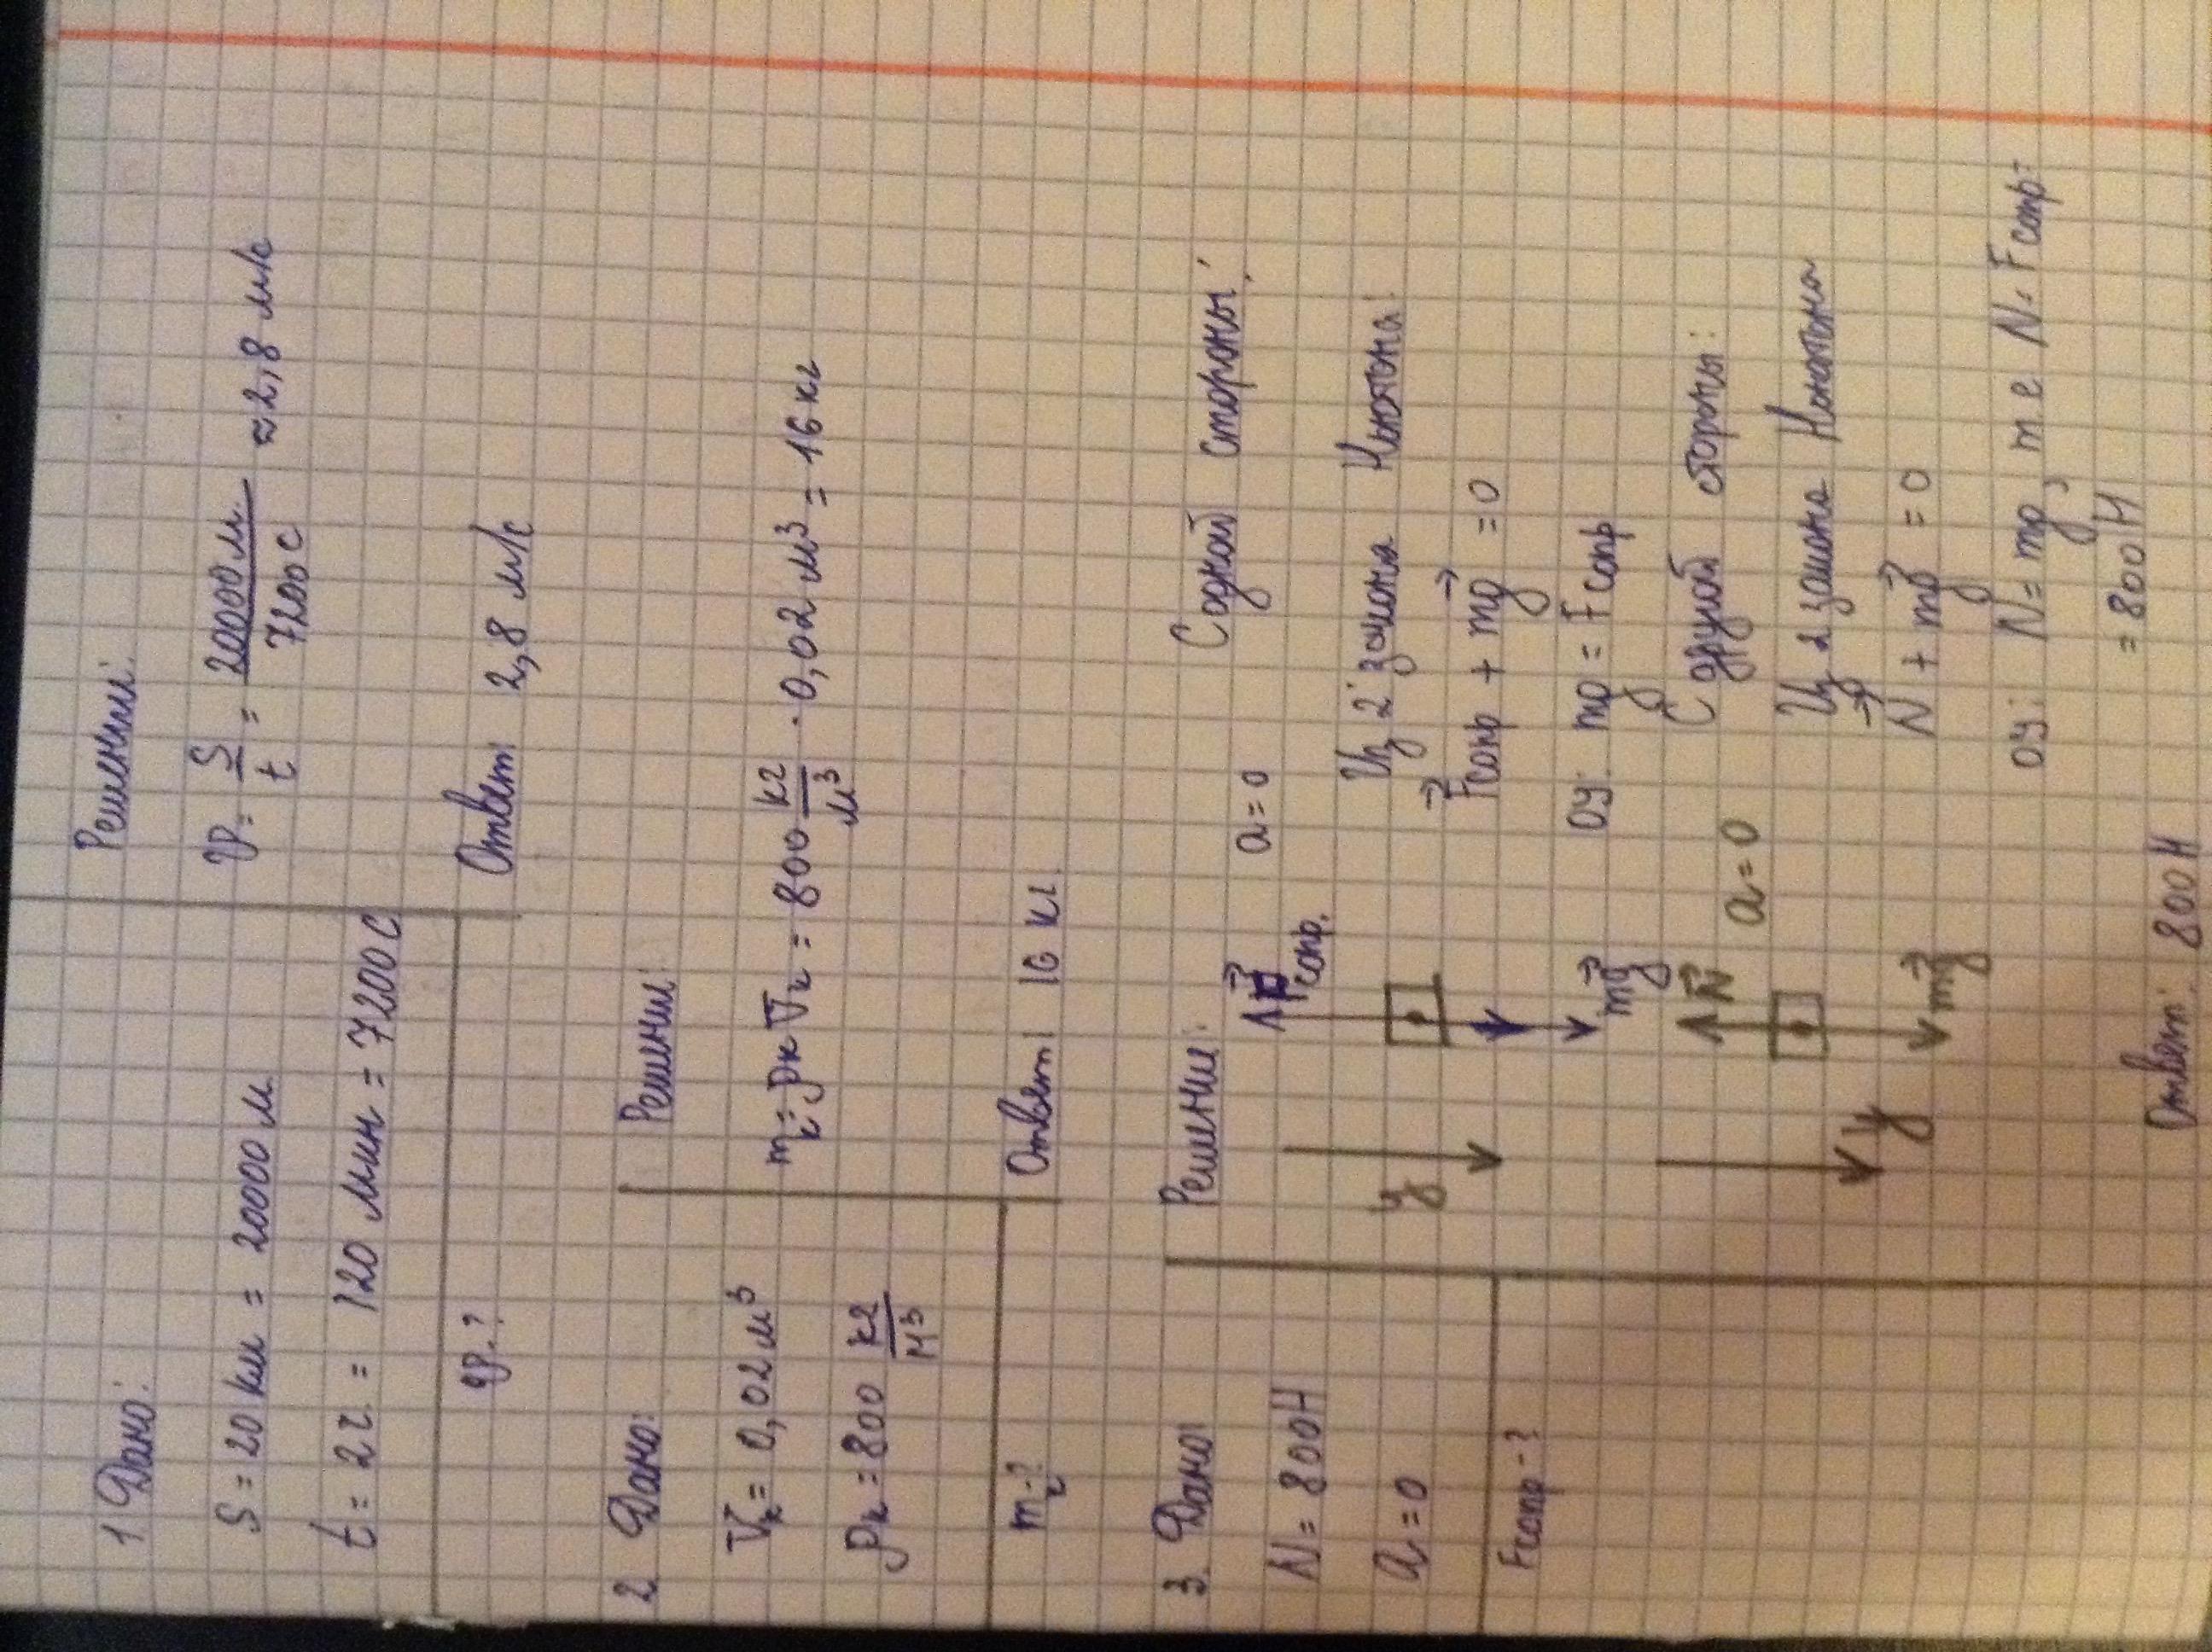 1 Дано:
S = 20 км = 20000 м
t = 2 ч. = 120 мин = 7200 с
υ-?
Решение:
υ = S/t = 20000 м/7200 с ≈ 2,8 м/с
Ответ: 2,8 м/с
2 Дано:
Vк = 0,02 м³
ρк = 800 кг/м³
mк-?
Решение:
mк = ρк Vк = 800 кг/м³ · 0,02 м³ = 16 кг
Ответ: 16 кг.
3. Дано:
N = 800 Н
a = 0
Fсопр-?
Решение:
y
F⃗сопр.
mg⃗
a = 0
С одной стороны:
Из 2 закона Ньютона:
F⃗сопр + mg⃗ = 0
oy: mg = Fсопр
y
N⃗
mg⃗
a = 0
С другой стороны:
Из 2 закона Ньютона
N⃗ + mg⃗ = 0
oy: N = mg, т е N = Fсопр =
= 800 Н
Ответ: 800 Н